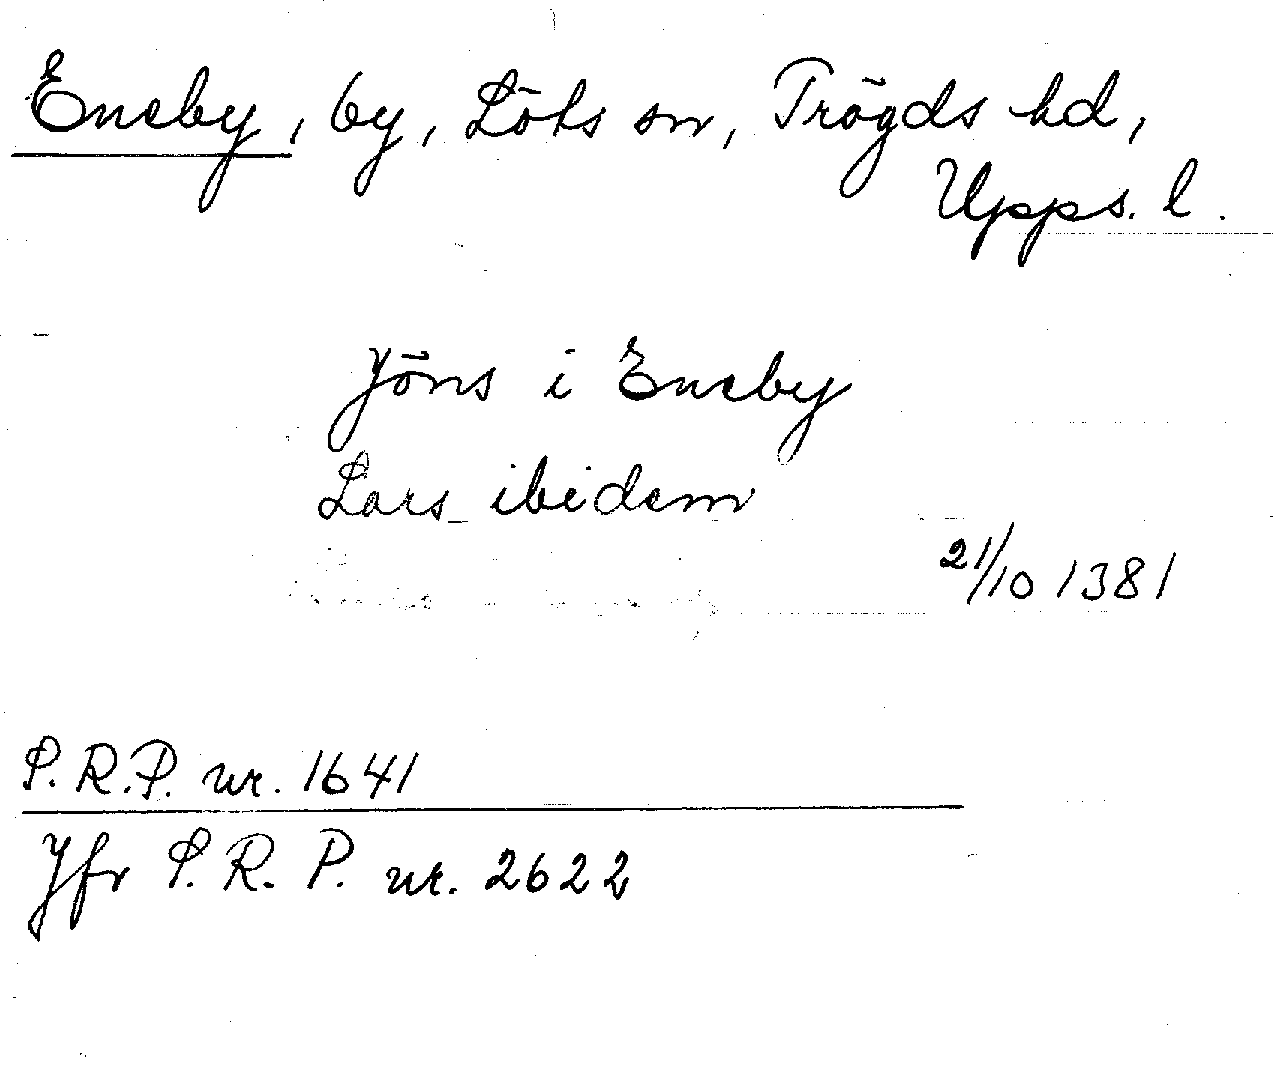 Eneby, by, Löts sn, Trögds hd,
Upps. l.
Jöns i Eneby
Lars ibidem
21/10 1381
S.R.P. nr. 1641
Jfr S.R.P. nr. 2622